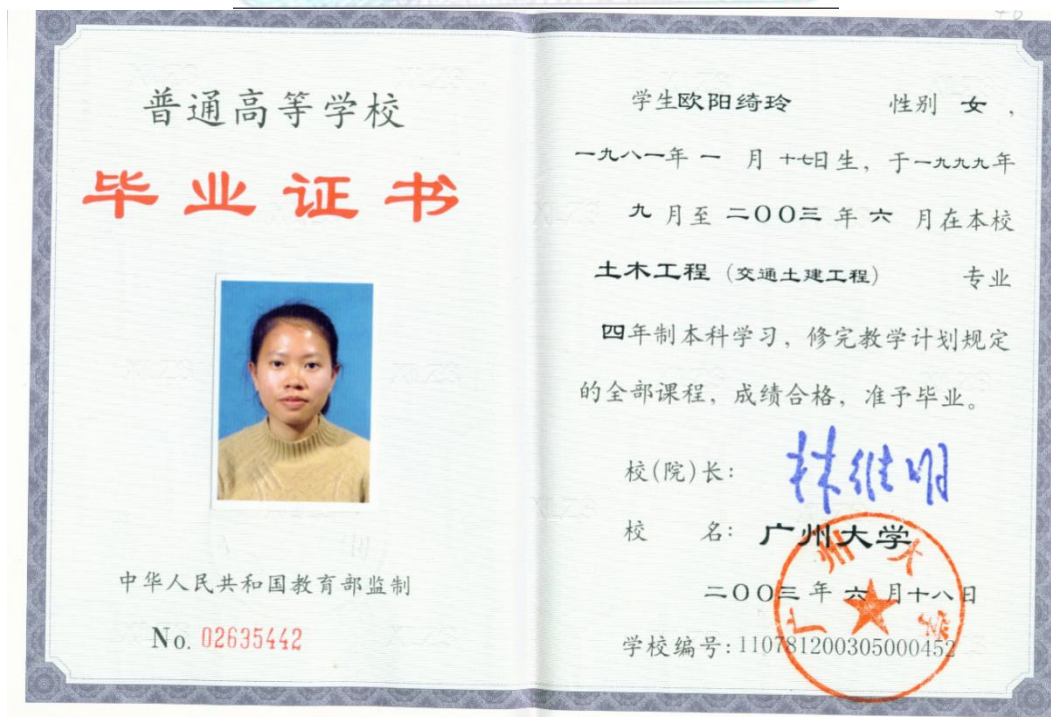 普通高等学校
毕业证书
中华人民共和国教育部监制
No. 02635442
学生欧阳绮玲 性别 女,
一九八一年 一 月 十七日生, 于一九九九年
九 月至 二〇〇三 年 六 月在本校
土木工程 (交通土建工程) 专业
四年制本科学习, 修完教学计划规定
的全部课程, 成绩合格, 准予毕业。
校(院)长: 林维明
校 名: 广州大学
二〇〇三 年 六 月十八日
学校编号: 110781200305000452
广州大学